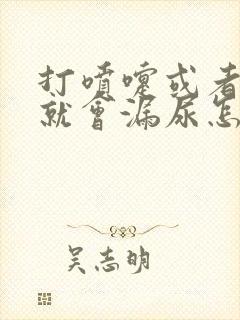 打喷嚏或者
就会漏尿怎
吴志明